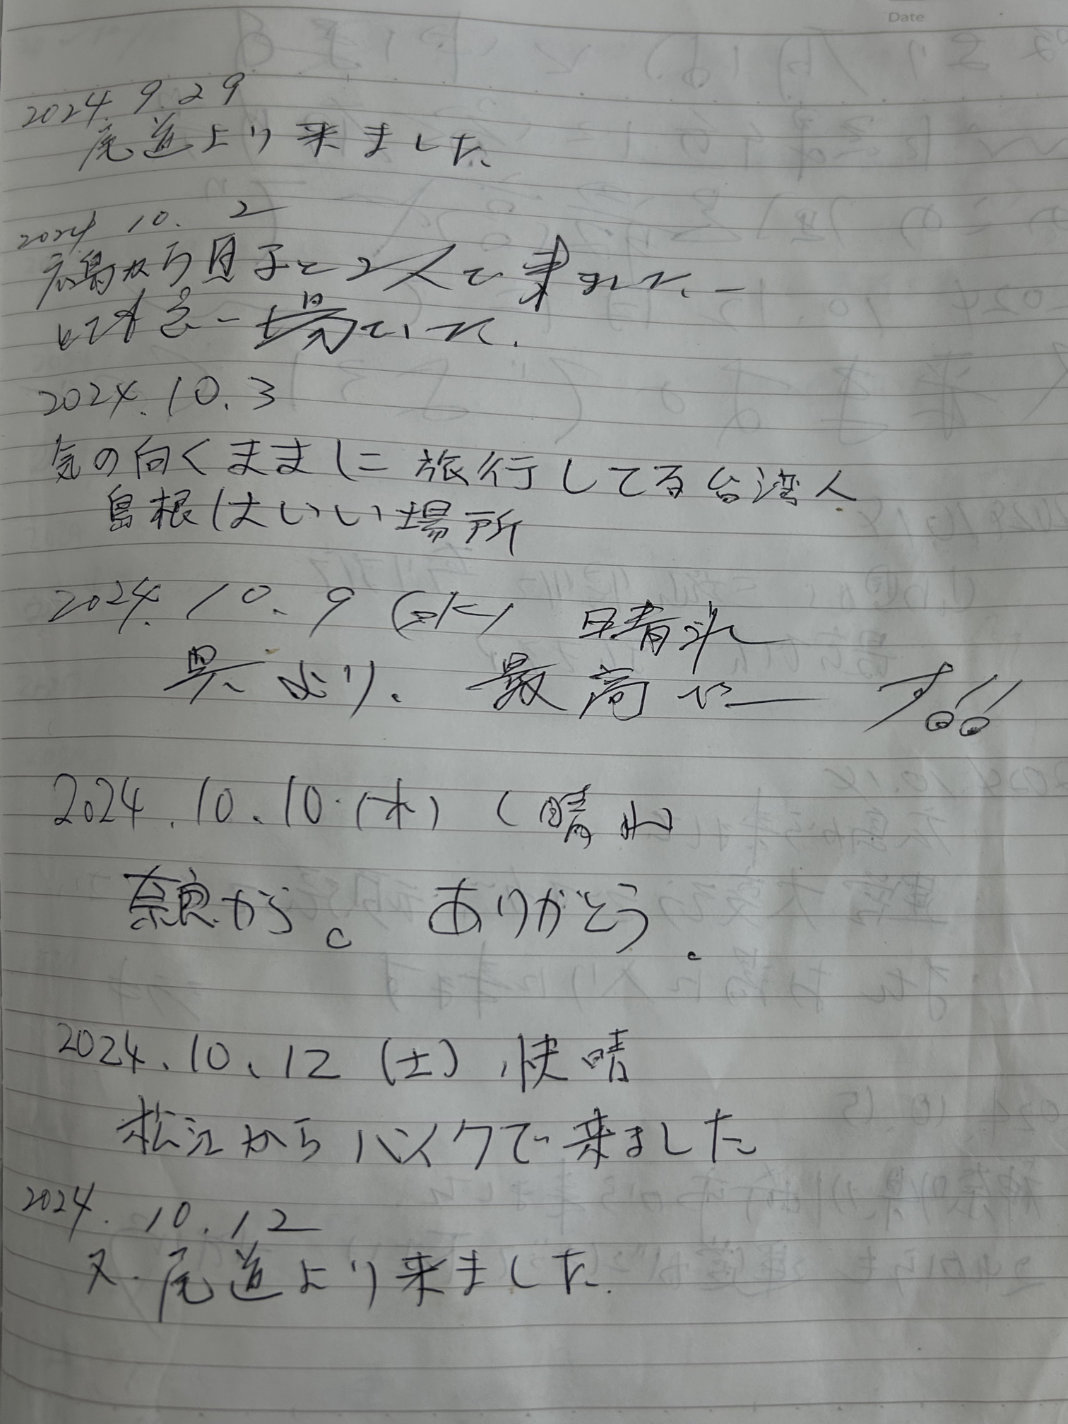 Date
2024. 9. 29
尾道より来ました
2024 10. 2
広島から息子と2人で来ました
とても良い場でした.
2024.10.3
気の向くままに旅行してる台湾人
島根はいい場所
2024. 10. 9 (水) 晴れ
呉より. 最高でーす!!
2024.10.10.(木) (晴れ
奈良から。ありがとう.
2024.10.12 (土) 快晴
松江からバイクで来ました
2024. 10.12
又. 尾道より来ました.